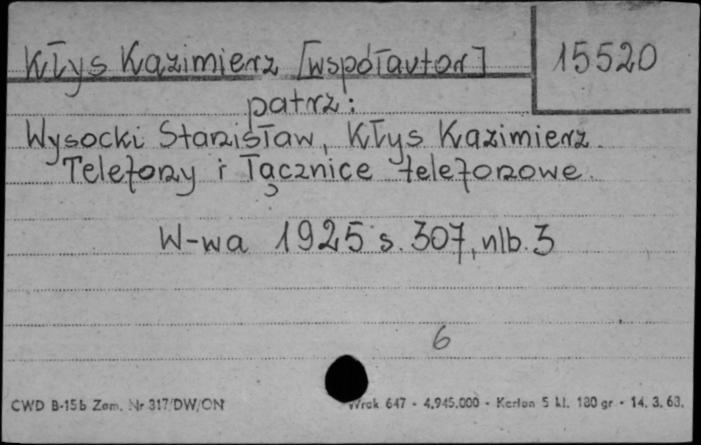 Kłys Kazimierz [współautor] 15520
patrz:
Wysocki Stanisław, Kłys Kazimierz.
Telefony i Łącznice telefonowe.
W-wa 1925 s. 307, nlb. 3
6
CWD B-15b Zam. Nr 317/DW/ON Wrak 647 - 4.945.000 - Karton 5 kl. 180 gr - 14. 3. 63.